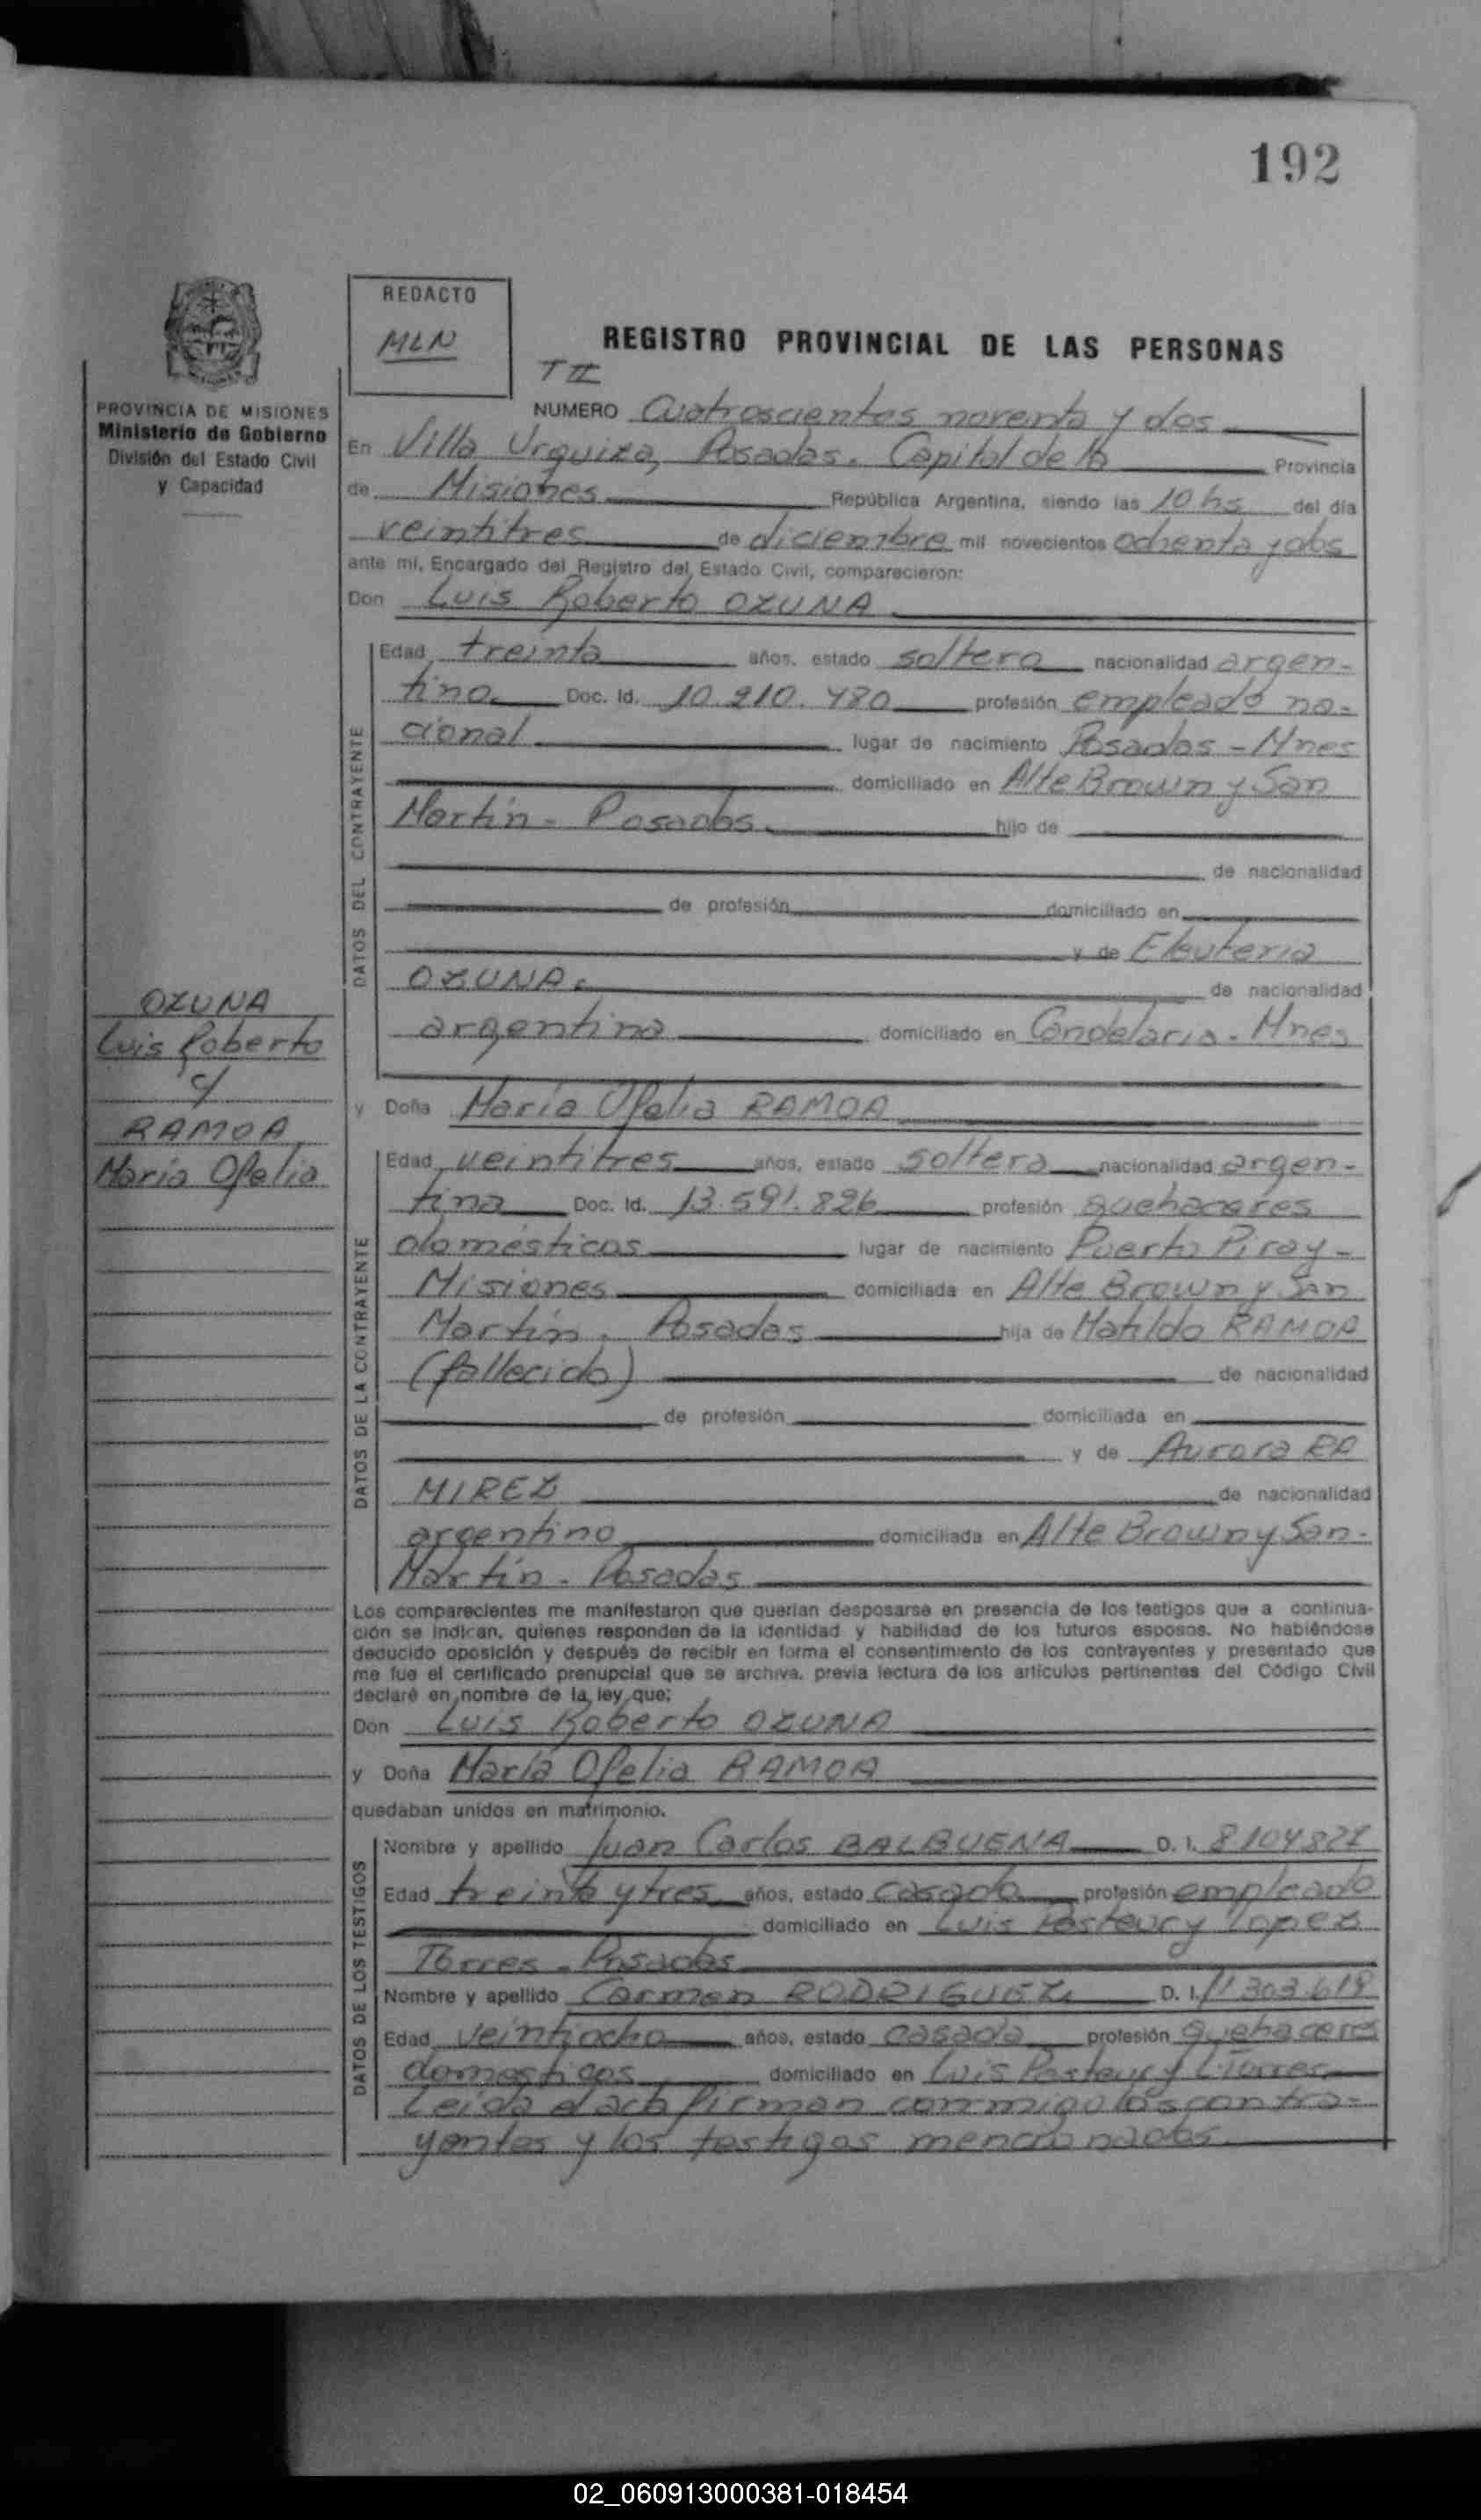 192
REDACTO
MLN
REGISTRO PROVINCIAL DE LAS PERSONAS
T II
PROVINCIA DE MISIONES
Ministerio de Gobierno
División del Estado Civil
y Capacidad
NUMERO Cuatroscientos noventa y dos
En Villa Urquiza, Posadas. Capital de la Provincia
de Misiones República Argentina, siendo las 10 hs del día
veintitres de diciembre mil novecientos ochenta y dos
ante mí, Encargado del Registro del Estado Civil, comparecieron:
Don Luis Roberto OZUNA
DATOS DEL CONTRAYENTE
Edad treinta años, estado soltero nacionalidad argen-
tina Doc. Id. 10.210.480 profesión empleado na-
cional lugar de nacimiento Posadas - Mnes
domiciliado en Alte Brown y San
Martín - Posadas. hijo de
de nacionalidad
de profesión domiciliado en
y de Eleuteria
OZUNA. de nacionalidad
argentina domiciliado en Candelaria - Mnes
OZUNA
Luis Roberto
c/
RAMOA
María Ofelia
y Doña María Ofelia RAMOA
DATOS DE LA CONTRAYENTE
Edad veintitres años, estado soltera nacionalidad argen-
tina Doc. Id. 13.591.826 profesión quehaceres
domésticos lugar de nacimiento Puerto Piray -
Misiones domiciliada en Alte Brown y San
Martín. Posadas hija de Matildo RAMOA
(fallecido) de nacionalidad
de profesión domiciliada en
y de Aurora RA
MIREZ de nacionalidad
argentino domiciliada en Alte Brown y San-
Martín - Posadas
Los comparecientes me manifestaron que querían desposarse en presencia de los testigos que a continua-
ción se indican, quienes responden de la identidad y habilidad de los futuros esposos. No habiéndose
deducido oposición y después de recibir en forma el consentimiento de los contrayentes y presentado que
me fue el certificado prenupcial que se archiva, previa lectura de los artículos pertinentes del Código Civil
declaré en nombre de la ley que:
Don Luis Roberto OZUNA
y Doña María Ofelia RAMOA
quedaban unidos en matrimonio.
DATOS DE LOS TESTIGOS
Nombre y apellido Juan Carlos BALBUENA D. I.
Edad treinta y tres años, estado casado profesión empleado
domiciliado en Luis Pasteur y Lopez
Torres - Posadas
Nombre y apellido Carmen RODRIGUEZ D. I.
Edad veintiocho años, estado casada profesión quehaceres
domesticos domiciliado en Luis Pasteur y L. Torres
Leida el acta firman conmigo los contra-
yentes y los testigos mencionados
02_060913000381-018454